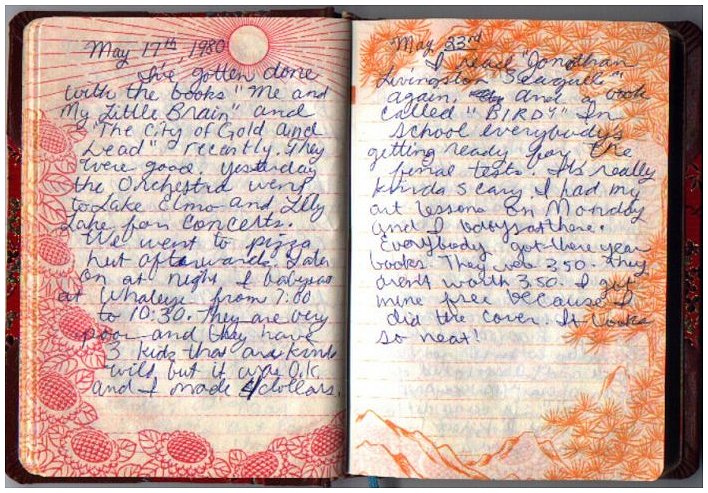 May 17th, 1980
I've gotten done
with the books "Me and
My Little Brain" and
"The City of Gold and
Lead" recently. They
were good. Yesterday
the Orchestra went
to Lake Elmo and Lily
Lake for concerts.
We went to pizza
hut aftowards. Later
on at night I babysat
at Whaleys from 7:00
to 10:30. They are very
poor and they have
3 kids that are kinda
wild but it was O.K.
and I made 4 dollars.
May 23rd
I read "Jonathan
Livingston Seagull"
again, and a book
called "BIRDY" In
school everybodys
getting ready for the
final tests. It's really
kinda scary. I had my
art lessons on Monday
and I babysat there.
Everybody got there year
books. They were 3.50. They
aren't worth 3.50. I got
mine free because I
did the cover. It looks
so neat!